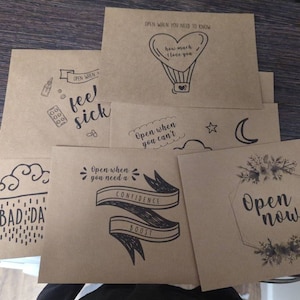 OPEN WHEN YOU NEED TO KNOW
how much
I love you
OPEN WHEN YOU
feel
sick
Open when
you can't
BAD DAY
Open when
you need a
CONFIDENCE
BOOST
Open
now